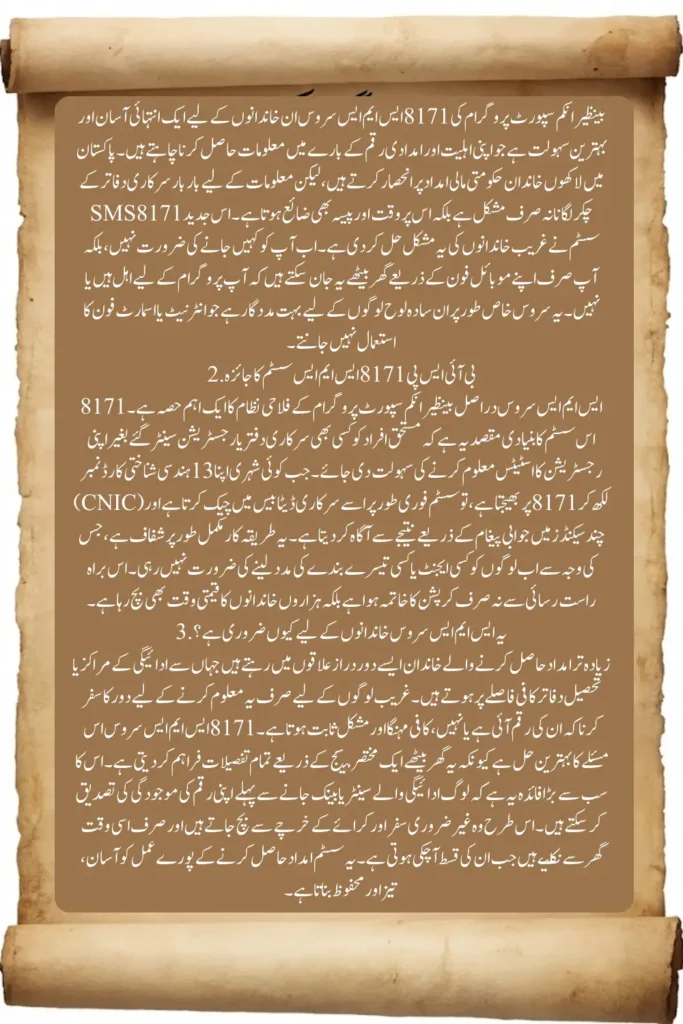 بینظیر انکم سپورٹ پروگرام کی 8171 ایس ایم ایس سروس ان خاندانوں کے لیے ایک انتہائی آسان اور
بہترین سہولت ہے جو اپنی اہلیت اور امدادی رقم کے بارے میں معلومات حاصل کرنا چاہتے ہیں۔ پاکستان
میں لاکھوں خاندان حکومتی مالی امداد پر انحصار کرتے ہیں، لیکن معلومات کے لیے بار بار سرکاری دفاتر کے
چکر لگانا نہ صرف مشکل ہے بلکہ اس پر وقت اور پیسہ بھی ضائع ہوتا ہے۔ اس جدید SMS8171
سسٹم نے غریب خاندانوں کی یہ مشکل حل کر دی ہے۔ اب آپ کو کہیں جانے کی ضرورت نہیں، بلکہ
آپ صرف اپنے موبائل فون کے ذریعے گھر بیٹھے یہ جان سکتے ہیں کہ آپ پروگرام کے لیے اہل ہیں یا
نہیں۔ یہ سروس خاص طور پر ان سادہ لوح لوگوں کے لیے بہت مددگار ہے جو انٹرنیٹ یا اسمارٹ فون کا
استعمال نہیں جانتے۔
بی آئی ایس پی 8171 ایس ایم ایس سسٹم کا جائزہ .2
ایس ایم ایس سروس دراصل بینظیر انکم سپورٹ پروگرام کے فلاحی نظام کا ایک اہم حصہ ہے۔ 8171
اس سسٹم کا بنیادی مقصد یہ ہے کہ مستحق افراد کو کسی بھی سرکاری دفتر یا رجسٹریشن سینٹر گئے بغیر اپنی
رجسٹریشن کا اسٹیٹس معلوم کرنے کی سہولت دی جائے۔ جب کوئی شہری اپنا 13 ہندسی شناختی کارڈ نمبر
لکھ کر 8171 پر بھیجتا ہے، تو سسٹم فوری طور پر اسے سرکاری ڈیٹا بیس میں چیک کرتا ہے اور (CNIC)
چند سیکنڈز میں جوابی پیغام کے ذریعے نتیجے سے آگاہ کر دیتا ہے۔ یہ طریقہ کار مکمل طور پر شفاف ہے، جس
کی وجہ سے اب لوگوں کو کسی ایجنٹ یا کسی تیسرے بندے کی مدد لینے کی ضرورت نہیں رہی۔ اس براہ
راست رسائی سے نہ صرف کرپشن کا خاتمہ ہوا ہے بلکہ ہزاروں خاندانوں کا قیمتی وقت بھی بچ رہا ہے۔
یہ ایس ایم ایس سروس خاندانوں کے لیے کیوں ضروری ہے؟ .3
زیادہ تر امداد حاصل کرنے والے خاندان ایسے دور دراز علاقوں میں رہتے ہیں جہاں سے ادائیگی کے مراکز یا
تحصیل دفاتر کافی فاصلے پر ہوتے ہیں۔ غریب لوگوں کے لیے صرف یہ معلوم کرنے کے لیے دور کا سفر
کرنا کہ ان کی رقم آئی ہے یا نہیں، کافی مہنگا اور مشکل ثابت ہوتا ہے۔ 8171 ایس ایم ایس سروس اس
مسئلے کا بہترین حل ہے کیونکہ یہ گھر بیٹھے ایک مختصر میسج کے ذریعے تمام تفصیلات فراہم کر دیتی ہے۔ اس کا
سب سے بڑا فائدہ یہ ہے کہ لوگ ادائیگی والے سینٹر یا بینک جانے سے پہلے اپنی رقم کی موجودگی کی تصدیق
کر سکتے ہیں۔ اس طرح وہ غیر ضروری سفر اور کرائے کے خرچے سے بچ جاتے ہیں اور صرف اسی وقت
گھر سے نکلتے ہیں جب ان کی قسط آ چکی ہوتی ہے۔ یہ سسٹم امداد حاصل کرنے کے پورے عمل کو آسان،
تیز اور محفوظ بناتا ہے۔